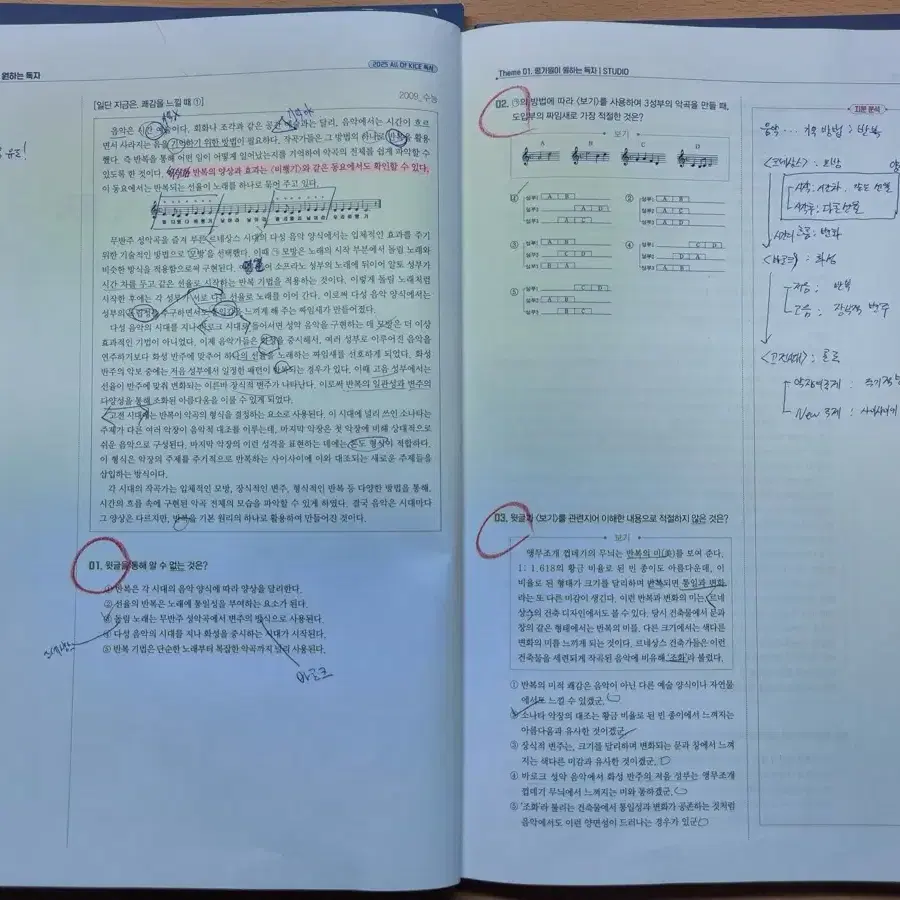 원하는 독자
2025 All Of KICE 독서
[일단 지금은, 쾌감을 느낄 때 ①]
2009_수능
음악은 시간 예술이다. 회화나 조각과 같은 공간 예술과는 달리, 음악에서는 시간이 흐르
면서 사라지는 음을 기억하기 위한 방법이 필요하다. 작곡가들은 그 방법의 하나로 반복을 활용
했다. 즉 반복을 통해 어떤 일이 어떻게 일어났는지를 기억하여 악곡의 전체를 쉽게 파악할 수
있도록 한 것이다. 반복의 양상과 효과는 <비행기>와 같은 동요에서도 확인할 수 있다.
이 동요에서는 반복되는 선율이 노래를 하나로 묶어 주고 있다.
무반주 성악곡을 즐겨 부른 르네상스 시대의 다성 음악 양식에서는 입체적인 효과를 주기
위한 기술적인 방법으로 '모방'을 선택했다. 이때 ㉠ 모방은 노래의 시작 부분에서 돌림 노래와
비슷한 방식을 적용함으로써 구현된다. 소프라노 성부의 노래에 뒤이어 알토 성부가
시간 차를 두고 같은 선율로 시작하는 반복 기법을 적용하는 것이다. 이렇게 돌림 노래처럼
시작한 후에는 각 성부가 서로 다른 선율로 노래를 이어 간다. 이로써 다성 음악 양식에서는
성부의 독립성을 추구하면서도 통일감을 느끼게 해 주는 짜임새가 만들어졌다.
다성 음악의 시대를 지나 바로크 시대로 들어서면 성악 음악을 구현하는 데 모방은 더 이상
효과적인 기법이 아니었다. 이제 음악가들은 화성을 중시해서, 여러 성부로 이루어진 음악을
연주하기보다 화성 반주에 맞추어 하나의 선율을 노래하는 짜임새를 선호하게 되었다. 화성
반주의 악보 중에는 저음 성부에서 일정한 패턴이 반복되는 경우가 있다. 이때 고음 성부에서는
선율이 반주에 맞춰 변화되는 이른바 장식적 변주가 나타난다. 이로써 반복의 일관성과 변주의
다양성을 통해 조화된 아름다움을 이룰 수 있게 되었다.
고전 시대에는 반복이 악곡의 형식을 결정하는 요소로 사용된다. 이 시대에 널리 쓰인 소나타는
주제가 다른 여러 악장이 음악적 대조를 이루는데, 마지막 악장은 첫 악장에 비해 상대적으로
쉬운 음악으로 구성된다. 마지막 악장의 이런 성격을 표현하는 데에는 론도 형식이 적합하다.
이 형식은 악장의 주제를 주기적으로 반복하는 사이사이에 이와 대조되는 새로운 주제들을
삽입하는 방식이다.
각 시대의 작곡가는 입체적인 모방, 장식적인 변주, 형식적인 반복 등 다양한 방법을 통해,
시간의 흐름 속에 구현된 악곡 전체의 모습을 파악할 수 있게 하였다. 결국 음악은 시대마다
그 양상은 다르지만, 반복을 기본 원리의 하나로 활용하여 만들어진 것이다.
01. 윗글을 통해 알 수 없는 것은?
① 반복은 각 시대의 음악 양식에 따라 양상을 달리한다.
② 선율의 반복은 노래에 통일성을 부여하는 요소가 된다.
③ 돌림 노래는 무반주 성악곡에서 변주의 방식으로 사용된다.
④ 다성 음악의 시대를 지나 화성을 중시하는 시대가 시작된다.
⑤ 반복 기법은 단순한 노래부터 복잡한 악곡까지 널리 사용된다.
바로크
Theme 01. 평가원이 원하는 독자 | STUDIO
02. ㉠의 방법에 따라 <보기>를 사용하여 3성부의 악곡을 만들 때,
도입부의 짜임새로 가장 적절한 것은?
보기
A B C D
① ②
성부1 A B
성부2 A D
성부3 A C
③ ④
⑤
03. 윗글과 <보기>를 관련지어 이해한 내용으로 적절하지 않은 것은?
보기
앵무조개 껍데기의 무늬는 반복의 미(美)를 보여 준다.
1 : 1.618의 황금 비율로 된 빈 종이도 아름다운데, 이
비율로 된 형태가 크기를 달리하며 반복되면 통일과 변화
라는 또 다른 미감이 생긴다. 이런 반복과 변화의 미는 르네
상스의 건축 디자인에서도 볼 수 있다. 당시 건축물에서 문과
창의 같은 형태에서는 반복의 미를, 다른 크기에서는 색다른
변화의 미를 느끼게 되는 것이다. 르네상스 건축가들은 이런
건축물을 세련되게 작곡된 음악에 비유해 '조화'라 불렀다.
① 반복의 미적 쾌감은 음악이 아닌 다른 예술 양식이나 자연물
에서도 느낄 수 있겠군.
② 소나타 악장의 대조는 황금 비율로 된 빈 종이에서 느껴지는
아름다움과 유사한 것이겠군.
③ 장식적 변주는, 크기를 달리하며 변화되는 문과 창에서 느껴
지는 색다른 미감과 유사한 것이겠군.
④ 바로크 성악 음악에서 화성 반주의 저음 성부는 앵무조개
껍데기 무늬에서 느껴지는 미와 통하겠군.
⑤ '조화'라 불리는 건축물에서 통일성과 변화가 공존하는 것처럼
음악에서도 이런 양면성이 드러나는 경우가 있군
지문 분석
음악 … 기억 방법 : 반복
<르네상스> : 모방
시작 : 시간차, 같은 선율
시작후 : 다른선율
시간의 흐름 : 변화
<바로크> : 화성
저음 : 반복
고음 : 장식적 변주
<고전시대> : 론도
악장의 주제 : 주기적
New 주제 : 사이사이